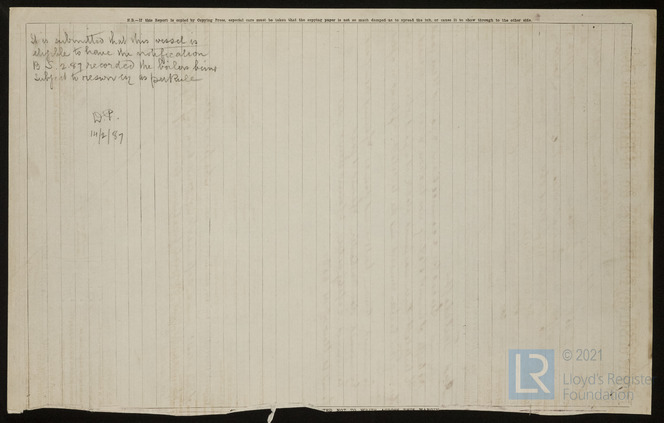 N.B.—If this Report is copied by Copying Press, especial care must be taken that the copying paper is not so much damped as to spread the ink, or cause it to show through to the other side.
It is submitted that this vessel is
eligible to have the notification
B.S. 2.87 recorded the boilers being
subject to as per Rule
D.P.
10/2/87
© 2021
Lloyd's Register
Foundation
LR